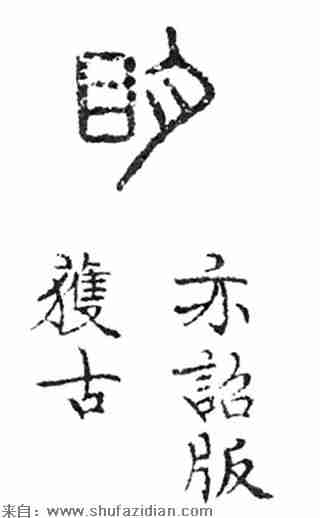 明
亦詔版
獲古
来自：www.shufazidian.com